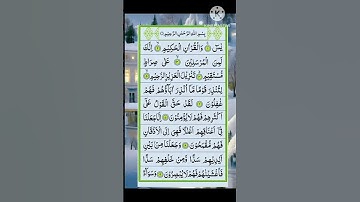 بِسْمِ اللّٰهِ الرَّحْمٰنِ الرَّحِيْمِ
يٰسٓ ۝ وَالْقُرْاٰنِ الْحَكِيْمِ ۝ اِنَّكَ
لَمِنَ الْمُرْسَلِيْنَ ۝ عَلٰى صِرَاطٍ
مُّسْتَقِيْمٍ ۝ تَنْزِيْلَ الْعَزِيْزِ الرَّحِيْمِ ۝
لِتُنْذِرَ قَوْمًا مَّآ اُنْذِرَ اٰبَآؤُهُمْ فَهُمْ
غٰفِلُوْنَ ۝ لَقَدْ حَقَّ الْقَوْلُ عَلٰٓى
اَكْثَرِهِمْ فَهُمْ لَا يُؤْمِنُوْنَ ۝ اِنَّا جَعَلْنَا
فِيْٓ اَعْنَاقِهِمْ اَغْلٰلًا فَهِيَ اِلَى الْاَذْقَانِ
فَهُمْ مُّقْمَحُوْنَ ۝ وَجَعَلْنَا مِنْۢ بَيْنِ
اَيْدِيْهِمْ سَدًّا وَّمِنْ خَلْفِهِمْ سَدًّا
فَاَغْشَيْنٰهُمْ فَهُمْ لَا يُبْصِرُوْنَ ۝ وَسَوَآءٌ